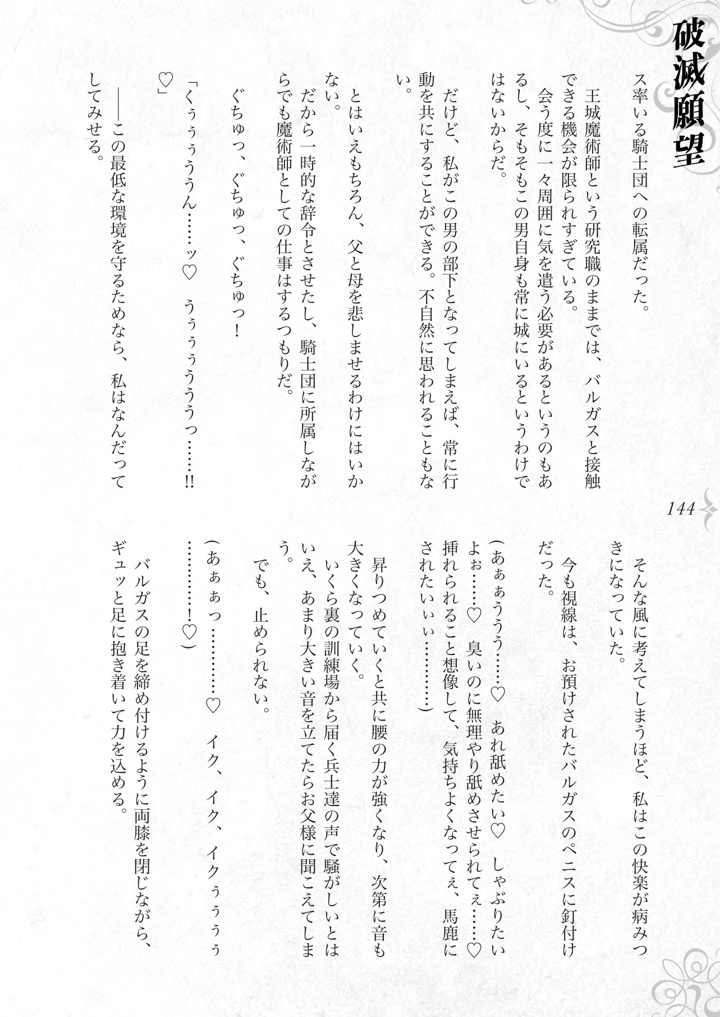 破滅願望
ス率いる騎士団への転属だった。
王城魔術師という研究職のままでは、バルガスと接触
できる機会が限られすぎている。
会う度に一々周囲に気を遣う必要があるというのもあ
るし、そもそもこの男自身も常に城にいるというわけで
はないからだ。
だけど、私がこの男の部下となってしまえば、常に行
動を共にすることができる。不自然に思われることもな
い。
とはいえもちろん、父と母を悲しませるわけにはいか
ない。
だから一時的な辞令とさせたし、騎士団に所属しなが
らでも魔術師としての仕事はするつもりだ。
ぐちゅっ、ぐちゅっ、ぐちゅっ！
「くぅぅぅううん……ッ♡　うぅぅぅうううっ……!!
♡」
――この最低な環境を守るためなら、私はなんだって
してみせる。
そんな風に考えてしまうほど、私はこの快楽が病みつ
きになっていた。
今も視線は、お預けされたバルガスのペニスに釘付け
だった。
(あぁぁううう……♡　あれ舐めたい♡　しゃぶりたい
よぉ……♡　臭いのに無理やり舐めさせられてぇ……♡
挿れられること想像して、気持ちよくなってぇ、馬鹿に
されたいぃぃ…………)
昇りつめていくと共に腰の力が強くなり、次第に音も
大きくなっていく。
いくら裏の訓練場から届く兵士達の声で騒がしいとは
いえ、あまり大きい音を立てたらお父様に聞こえてしま
う。
でも、止められない。
(あぁぁっ…………♡　イク、イク、イクぅぅぅぅ
……………！♡)
バルガスの足を締め付けるように両膝を閉じながら、
ギュッと足に抱き着いて力を込める。
144